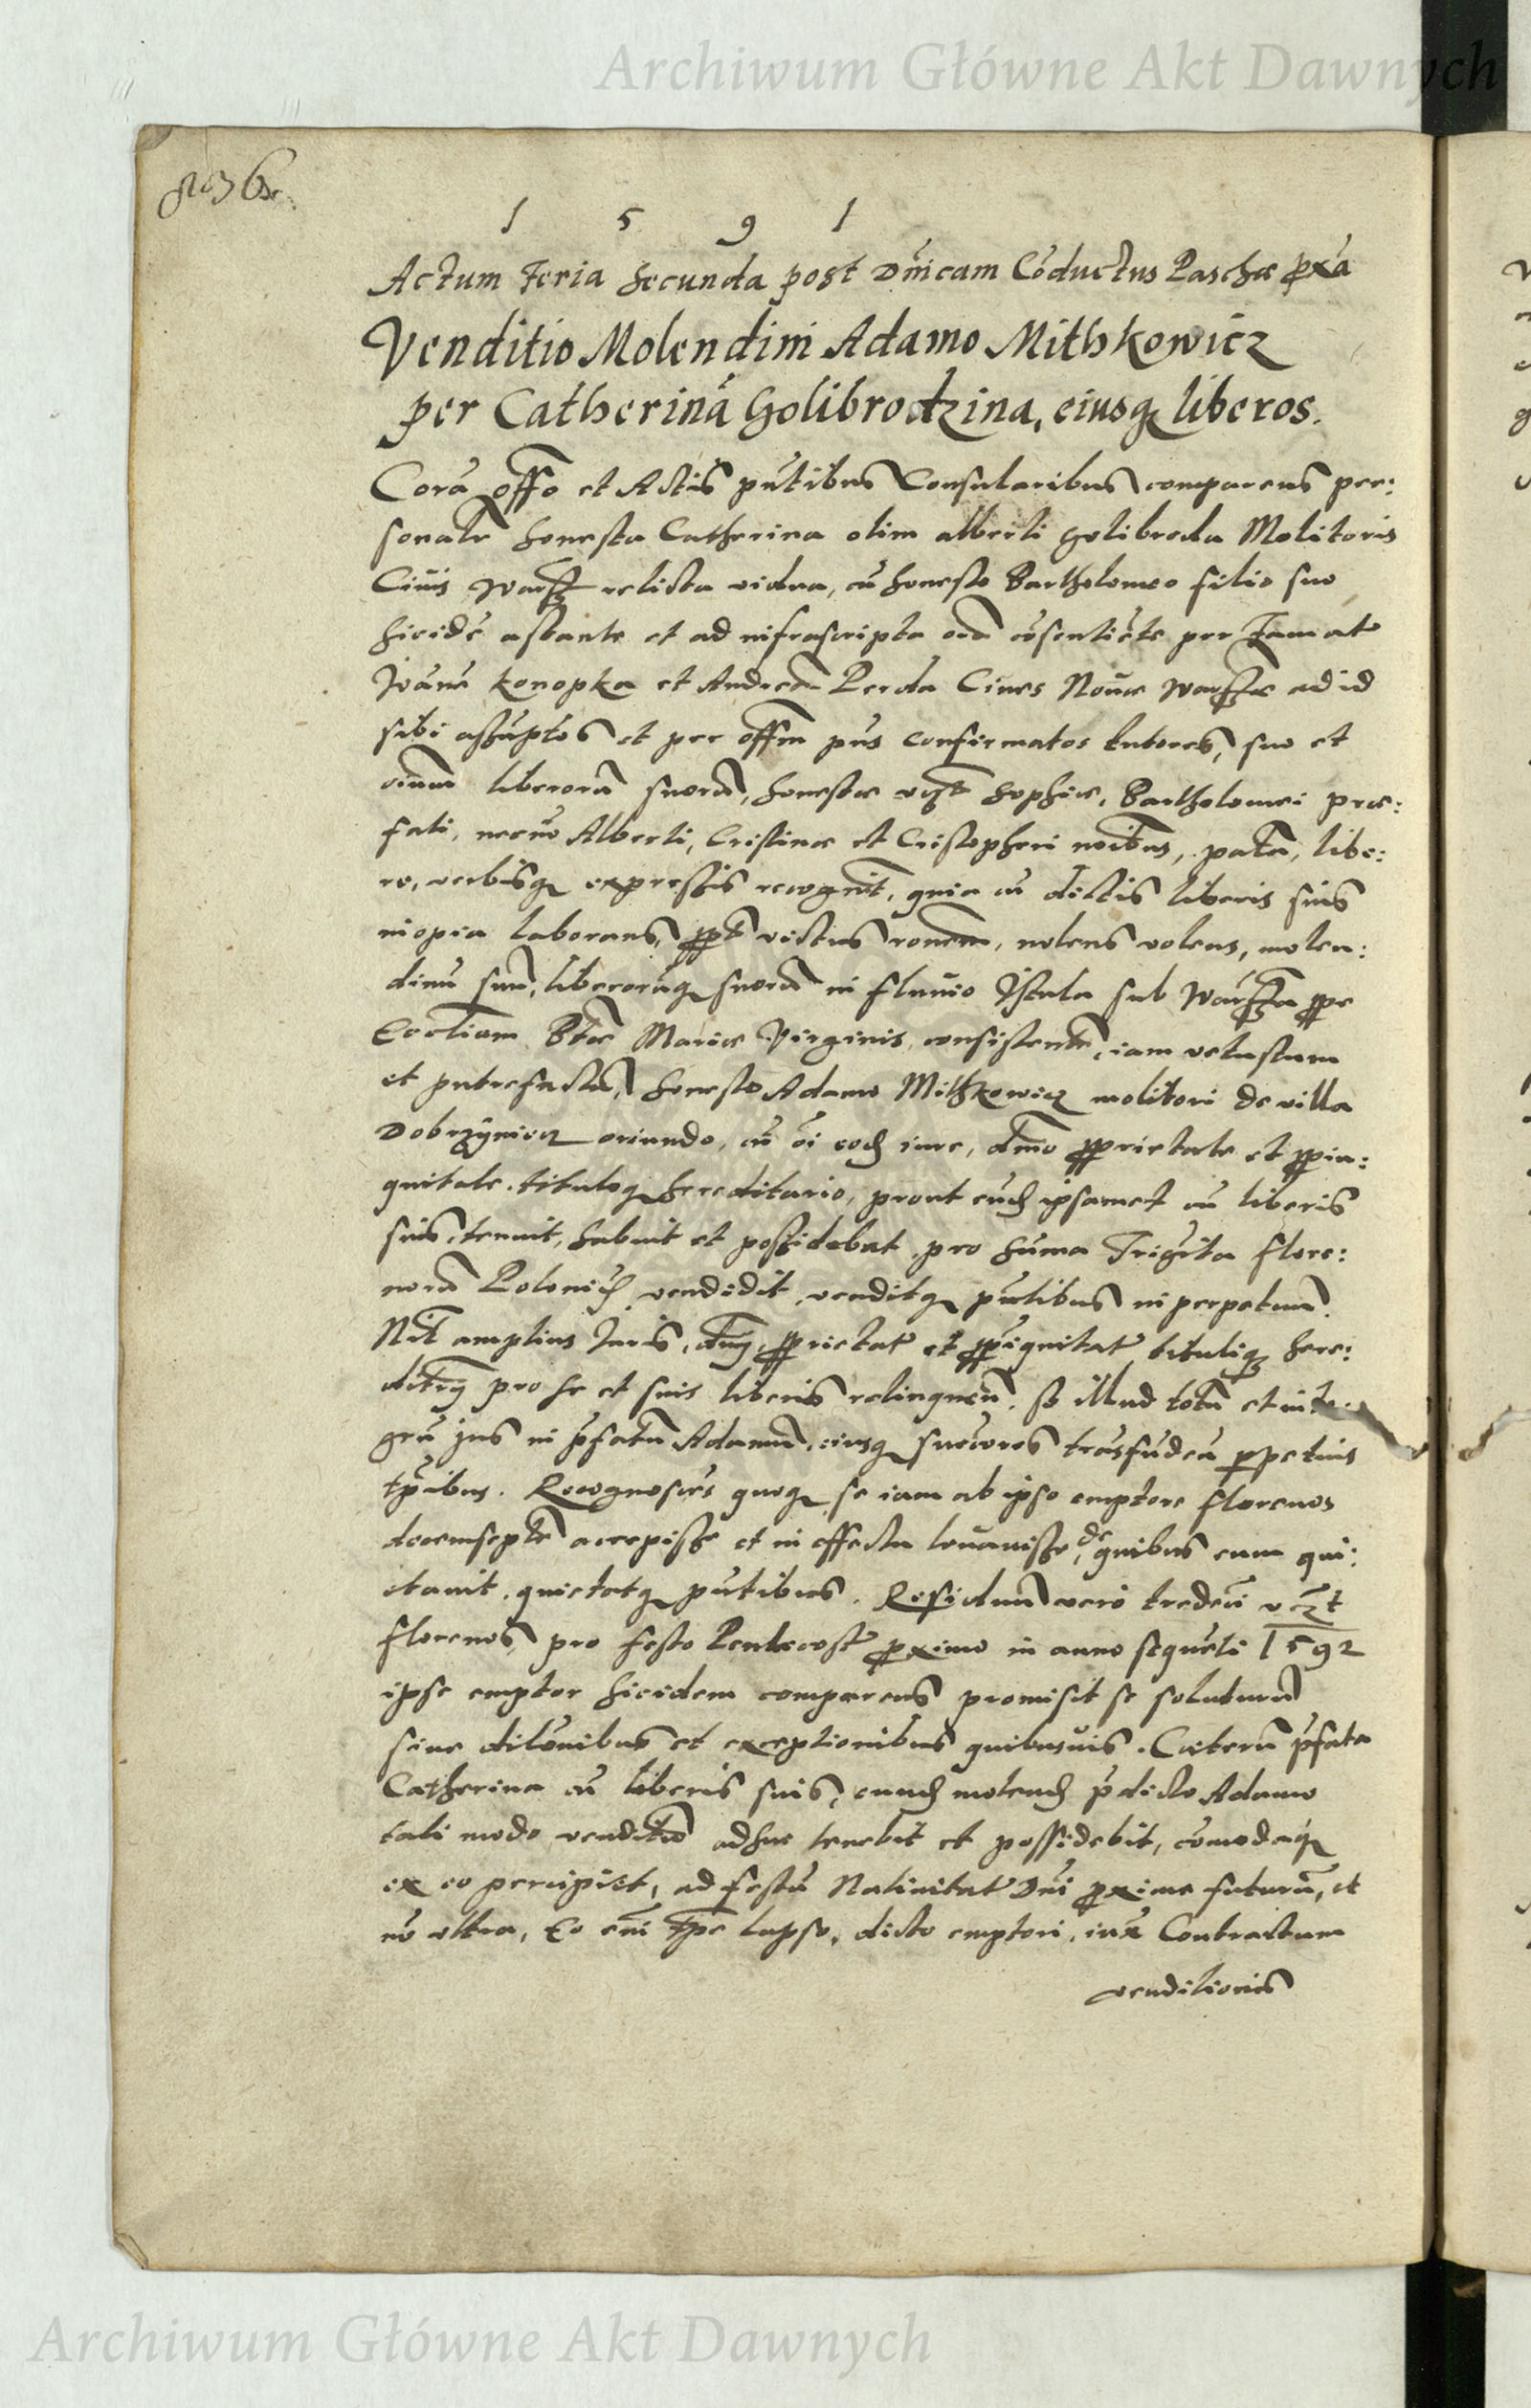 Archiwum Główne Akt Dawnych
1 5 9 1
Actum Feria Secunda post Dnicam Coductus Paschæ pxa
Venditio Molendini Adamo Mithkowicz
per Catherinā Golibrodzina, eiusq liberos.
Corā offo et Actis pntibus Consularibus comparens per:
sonalr honesta Catherina olim Alberti Golibroda Molitoris
Ciuis Warss relicta vidua, cū honesto Bartholomeo filio suo
hicidē astante et ad infrascripta oīa cōsentiēte per Famat
Ioānē Konopka et Andreā Perda Ciues Nouæ Warssæ ad id
sibi assūptos et per offm pns confirmatos tutores, suo et
oium liberorū suorū, honestæ vizt Sophiæ, Bartholomei præ:
fati, necnō Alberti, Cristinæ et Cristopheri noībus, palā, libe:
re, verbisq expressis recognit, quia cū dictis liberis suis
inopia laborans, ppt victus ronem, nolens volens, molen:
dinū suū, liberorūq suorū in fluuio Istula sub Warssa ppe
Ecclīam Btæ Mariæ Virginis consistentē, iam vetustum
et putrefactū, honesto Adamo Mithkowicz molitori de villa
Dobrzyniecz oriundo, cū oī eod iure, dnio pprietate et ppin:
quitate, tituloq hereditario, prout eund ipsamet cū liberis
suis, tenuit, habuit et possidebat, pro suma Trigīta flore:
norū Polonic vendidit, venditq pntibus in perpetuū.
Nil amplius Iuris, dnii, pprietat et ppiquitat tituliq here:
ditrii pro se et suis liberis relinquen. sȝ illud totū et inte:
grū ius in pfatū Adamū, eiusq succores trāsfuden ppetuis
tpibus. Recognoscēs quoq se iam ab ipso emptore florenos
decemseptē accepisse et in effectu leuauisse, de quibus eum qui:
etauit, quietatq pntibus. Residuū vero tredeci vizt
florenos, pro festo Pentecost pximo in anno sequēti 1592
ipse emptor hicidem comparens promisit se soluturū
sine dilōnibus et exceptionibus quibusuis. Cæterū pfata
Catherina cū liberis suis, eund molend pdicto Adamo
tali modo venditū adhuc tenebit et possidebit, cōmodaq
ex eo percipiet, ad festū Natiuitat Dni pxime futurū, et
nō vltra, Eo enī tpe lapso, dicto emptori, iux Contractum
venditionis
Archiwum Główne Akt Dawnych